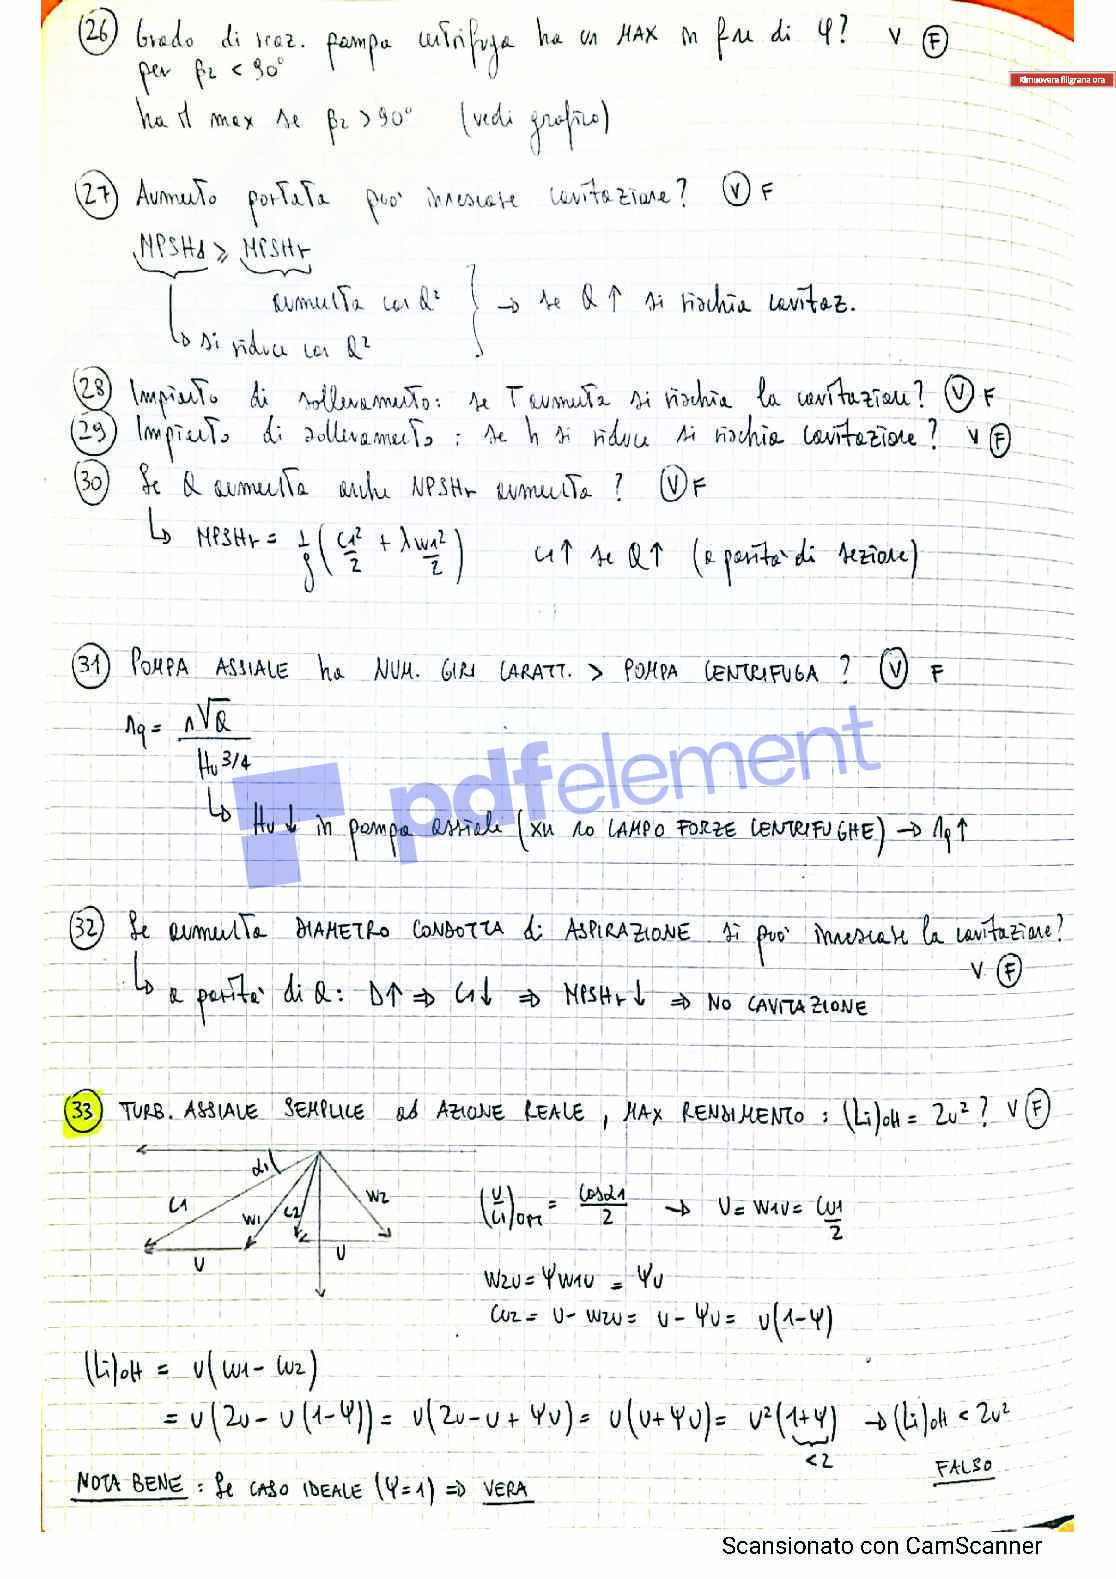 (26) Grado di reaz. pompa centrifuga ha un MAX in fne di φ? V (F)
per β2 < 90°
ha il max se β2 > 90° (vedi grafico)
Rimuovere filigrana ora
(27) Aumento portata può innescare cavitazione? (V) F
NPSHd ≥ NPSHr
aumenta con Q²
si riduce con Q²
→ se Q ↑ si rischia cavitaz.
(28) Impianto di sollevamento: se T aumenta si rischia la cavitazione? (V) F
(29) Impianto di sollevamento: se h si riduce si rischia cavitazione? V (F)
(30) Se Q aumenta anche NPSHr aumenta? (V) F
↳ NPSHr = 1/g (c1²/2 + λ w1²/2) c1↑ se Q↑ (a parità di sezione)
(31) POMPA ASSIALE ha NUM. GIRI CARATT. > POMPA CENTRIFUGA? (V) F
nq = n√Q / Hu^3/4
↳ Hu ↓ in pompa assiali (xke no CAMPO FORZE CENTRIFUGHE) → nq↑
pdfelement
(32) Se aumenta DIAMETRO CONDOTTA di ASPIRAZIONE si può innescare la cavitazione?
V (F)
↳ a parità di Q: D↑ ⇒ c1↓ ⇒ NPSHr↓ ⇒ NO CAVITAZIONE
(33) TURB. ASSIALE SEMPLICE ad AZIONE REALE, MAX RENDIMENTO: (Li)ott = 2u²? V (F)
α1
c1
w1
c2
w2
u
u
(u/c1)ott = cosα1/2 → u = w1u = cu1/2
w2u = ψw1u = ψu
cu2 = u - w2u = u - ψu = u(1-ψ)
(Li)ott = u(cu1 - cu2)
= u(2u - u(1-ψ)) = u(2u - u + ψu) = u(u + ψu) = u²(1+ψ) → (Li)ott < 2u²
<2
FALSO
NOTA BENE: Se CASO IDEALE (ψ=1) ⇒ VERA
Scansionato con CamScanner